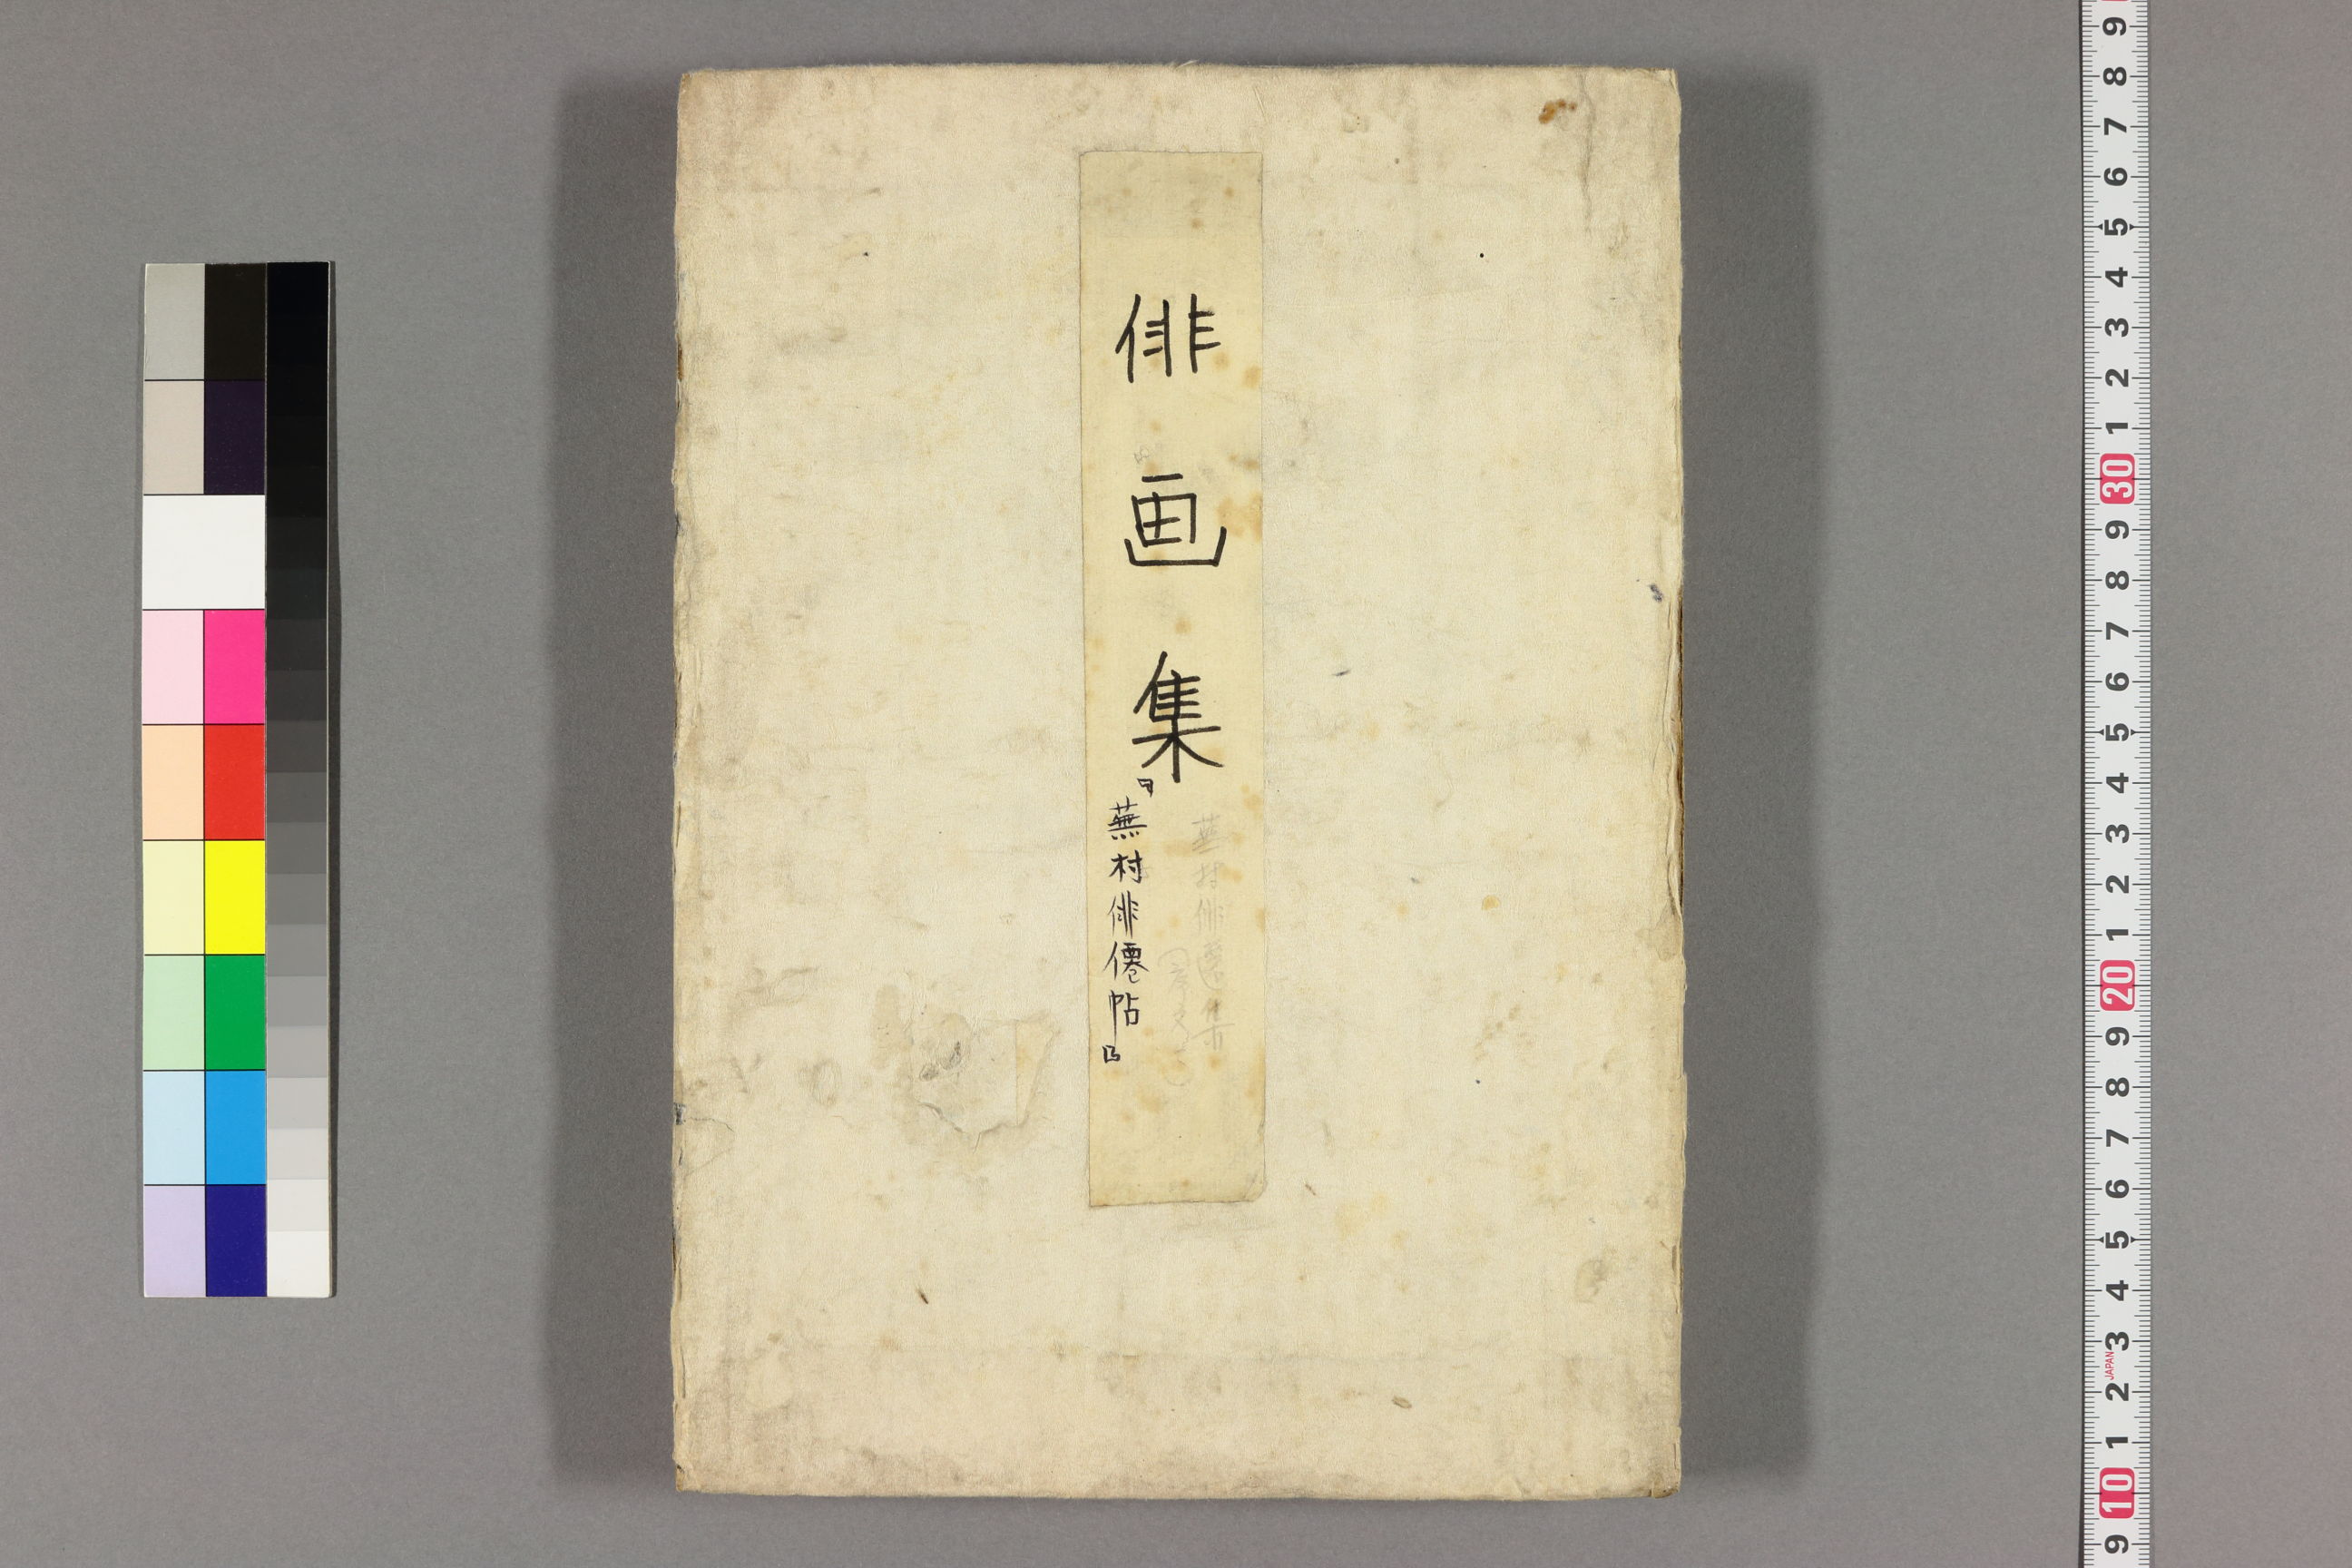 俳画集
『蕪村俳僊帖』
蕪村俳僊集
9
8
7
6
5
4
3
2
1
30
9
8
7
6
5
4
3
2
1
20
9
8
7
6
5
4
3
JAPAN
2
1
10
9